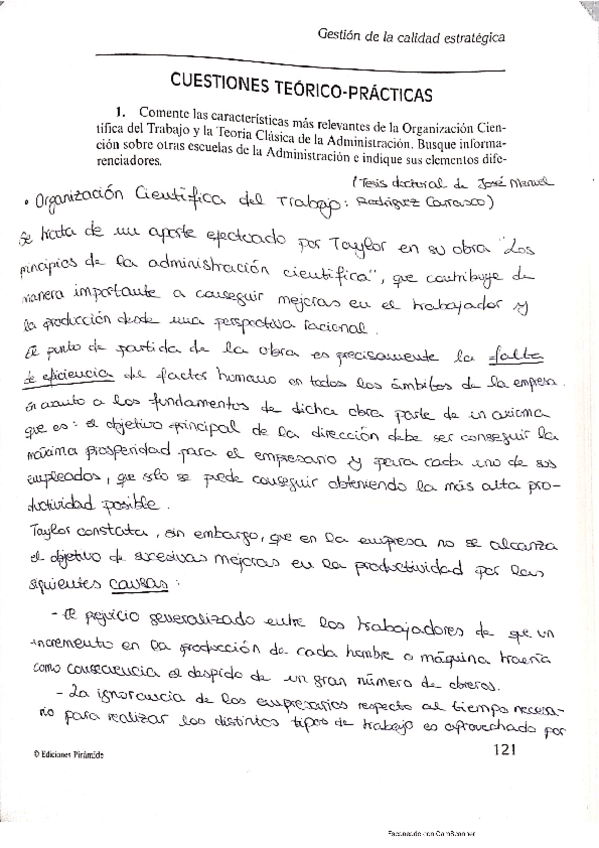 Gestión de la calidad estratégica
CUESTIONES TEÓRICO-PRÁCTICAS
1. Comente las características más relevantes de la Organización Cien-
tífica del Trabajo y la Teoría Clásica de la Administración. Busque informa-
ción sobre otras escuelas de la Administración e indique sus elementos dife-
renciadores.
(Tesis doctoral de José Manuel
• Organización Científica del Trabajo: Rodríguez Carrasco)
Se trata de un aporte efectuado por Taylor en su obra "Los
principios de la administración científica", que contribuye de
manera importante a conseguir mejoras en el trabajador y
la producción desde una perspectiva racional.
El punto de partida de la obra es precisamente la falta
de eficiencia del factor humano en todos los ámbitos de la empresa.
En cuanto a los fundamentos de dicha obra parte de un axioma
que es: el objetivo principal de la dirección debe ser conseguir la
máxima prosperidad para el empresario y para cada uno de sus
empleados, que sólo se puede conseguir obteniendo la más alta pro-
ductividad posible.
Taylor constata, sin embargo, que en la empresa no se alcanza
el objetivo de sucesivas mejoras en la productividad por las
siguientes causas:
- El prejuicio generalizado entre los trabajadores de que un
incremento en la producción de cada hombre o máquina traería
como consecuencia el despido de un gran número de obreros.
- La ignorancia de los empresarios respecto al tiempo necesa-
rio para realizar los distintos tipos de trabajo es aprovechado por
© Ediciones Pirámide
121
Escaneado con CamScanner